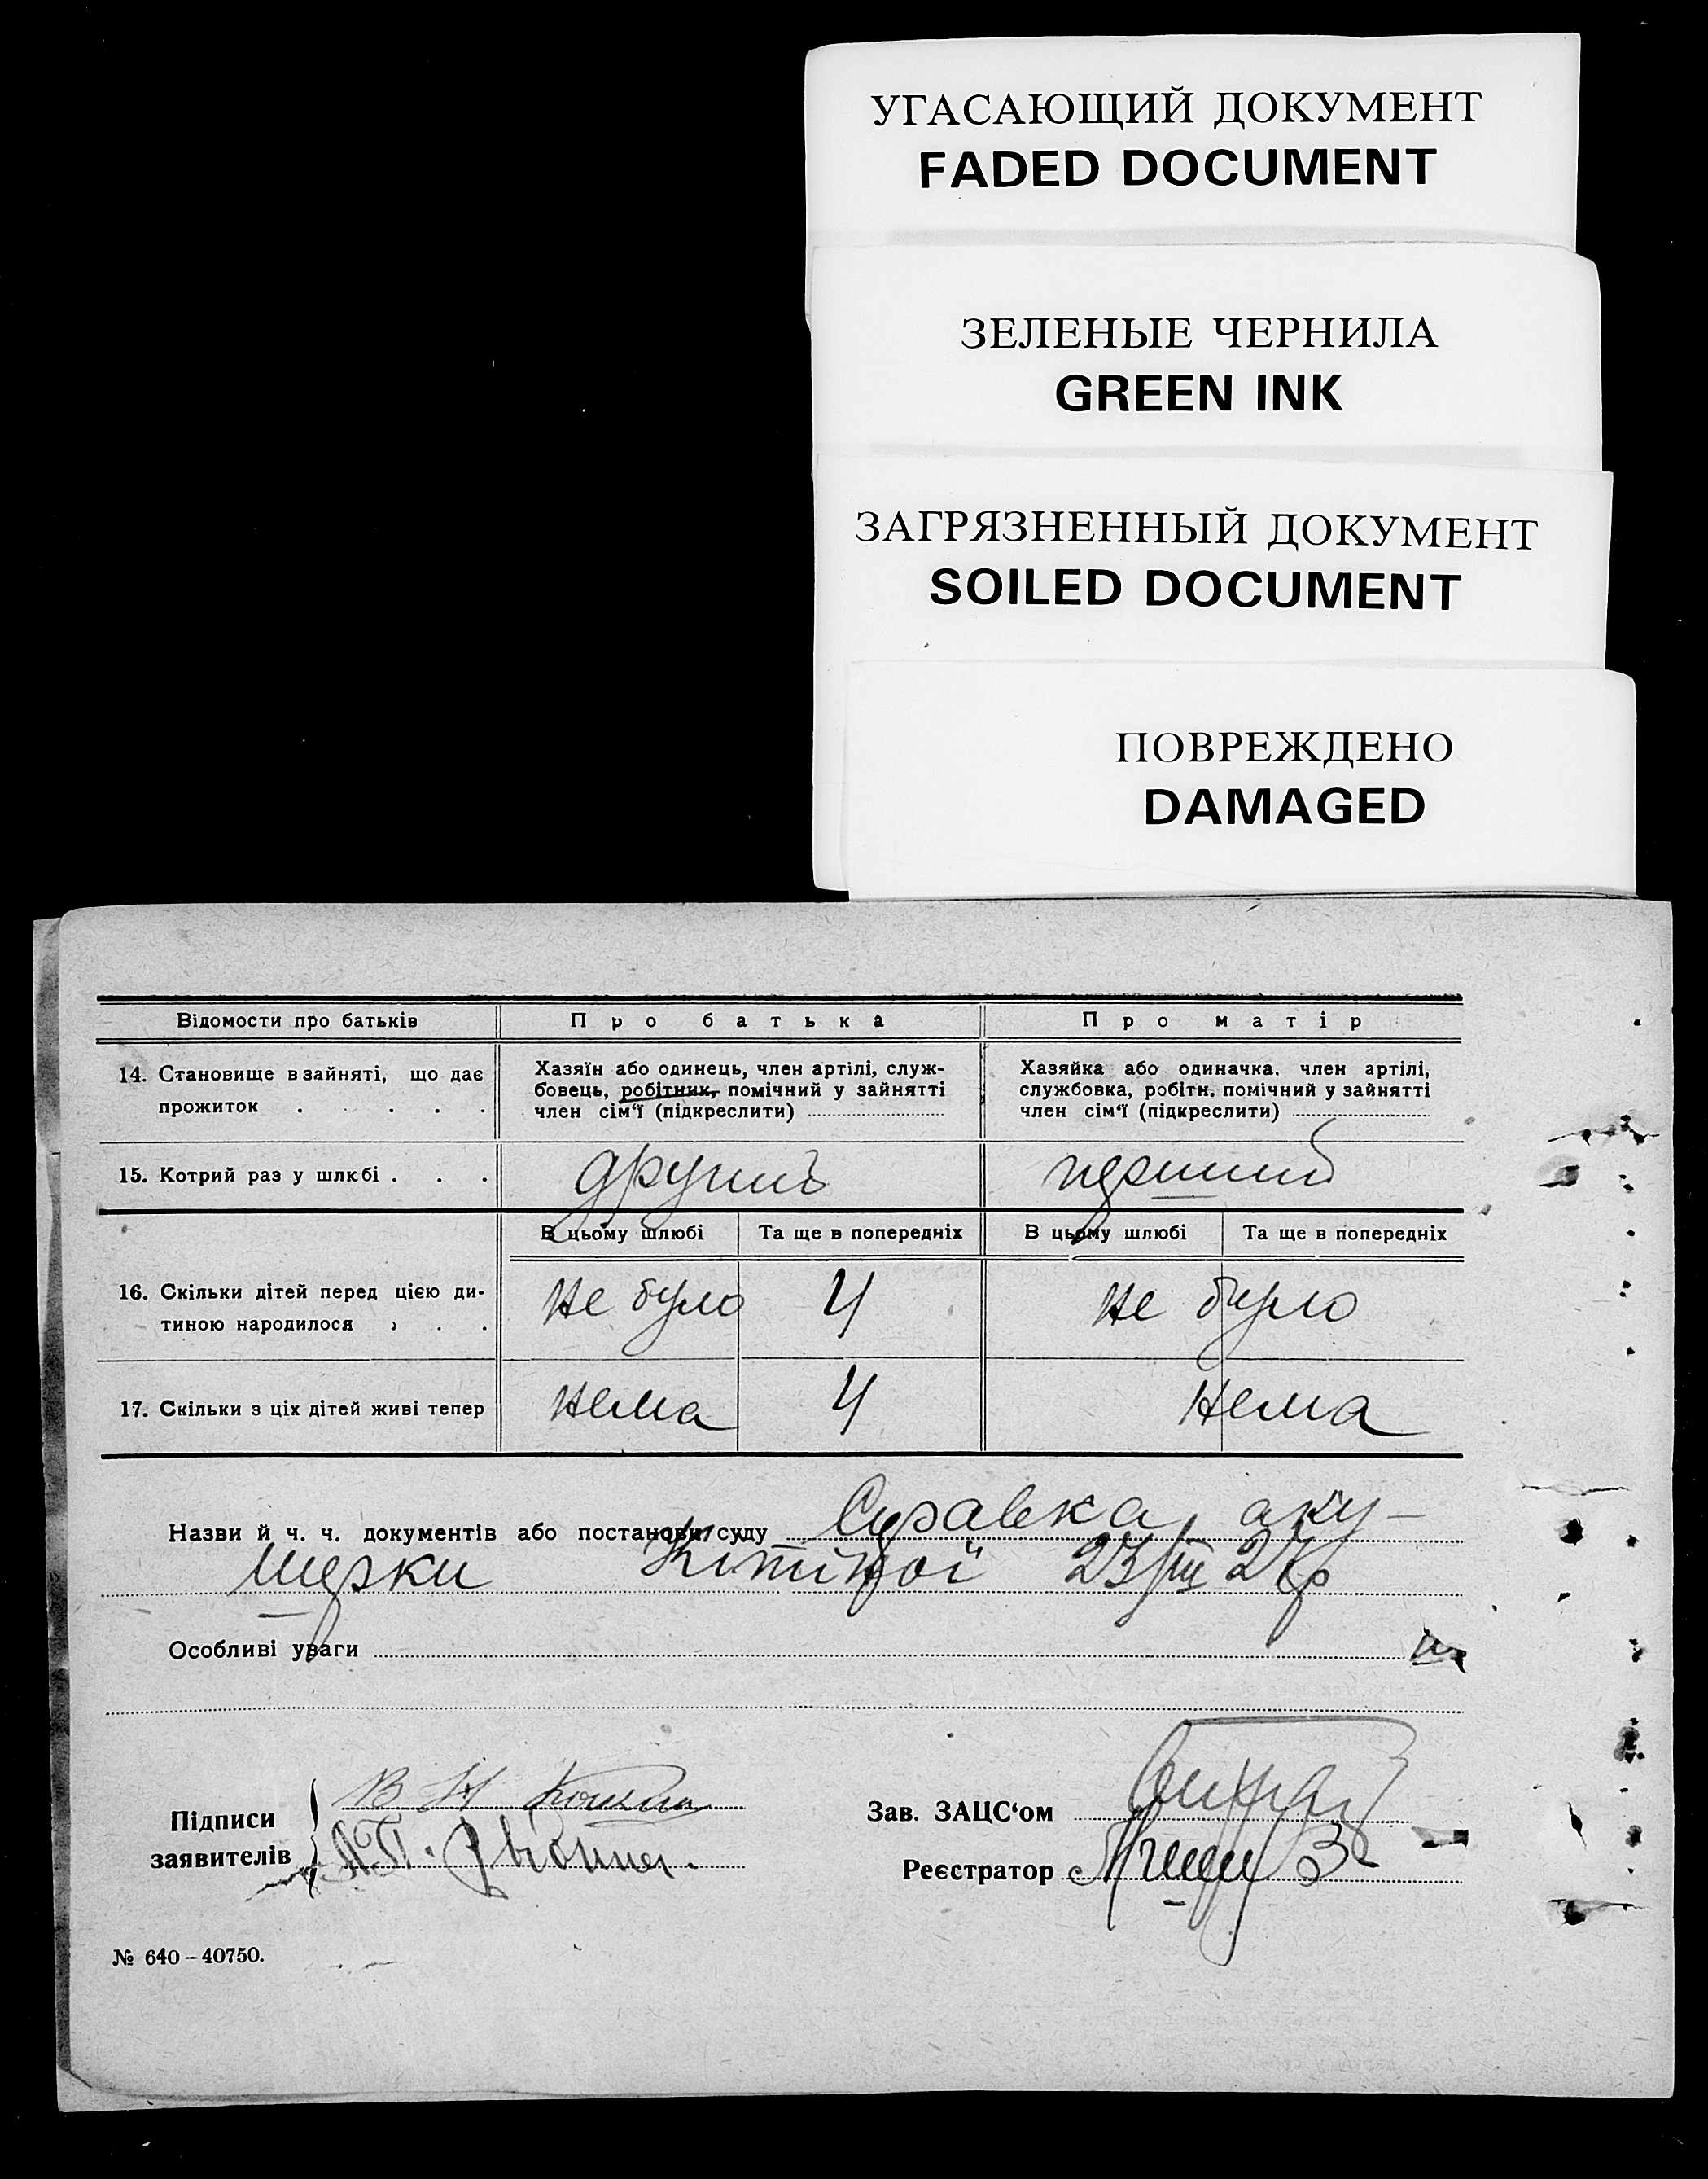 УГАСАЮЩИЙ ДОКУМЕНТ
FADED DOCUMENT
ЗЕЛЕНЫЕ ЧЕРНИЛА
GREEN INK
ЗАГРЯЗНЕННЫЙ ДОКУМЕНТ
SOILED DOCUMENT
ПОВРЕЖДЕНО
DAMAGED
Відомости про батьків Про батька Про матір
14. Становище в зайняті, що дає
прожиток . . . . .
Хазяїн або одинець, член артілі, служ-
бовець, робітник, помічний у зайнятті
член сім‘ї (підкреслити)
Хазяйка або одиначка. член артілі,
службовка, робітн. помічний у зайнятті
член сім‘ї (підкреслити)
15. Котрий раз у шлюбі . . . другий перший
В цьому шлюбі Та ще в попередніх В цьому шлюбі Та ще в попередніх
16. Скільки дітей перед цією ди-
тиною народилося . . .
не було 4 не було
17. Скільки з ціх дітей живі тепер нема 4 нема
Назви й ч. ч. документів або постанови суду Справка аку-
шерки 23/III
Особливі уваги
Підписи
заявителів
В Н
Зав. ЗАЦС‘ом
Реєстратор
№ 640–40750.